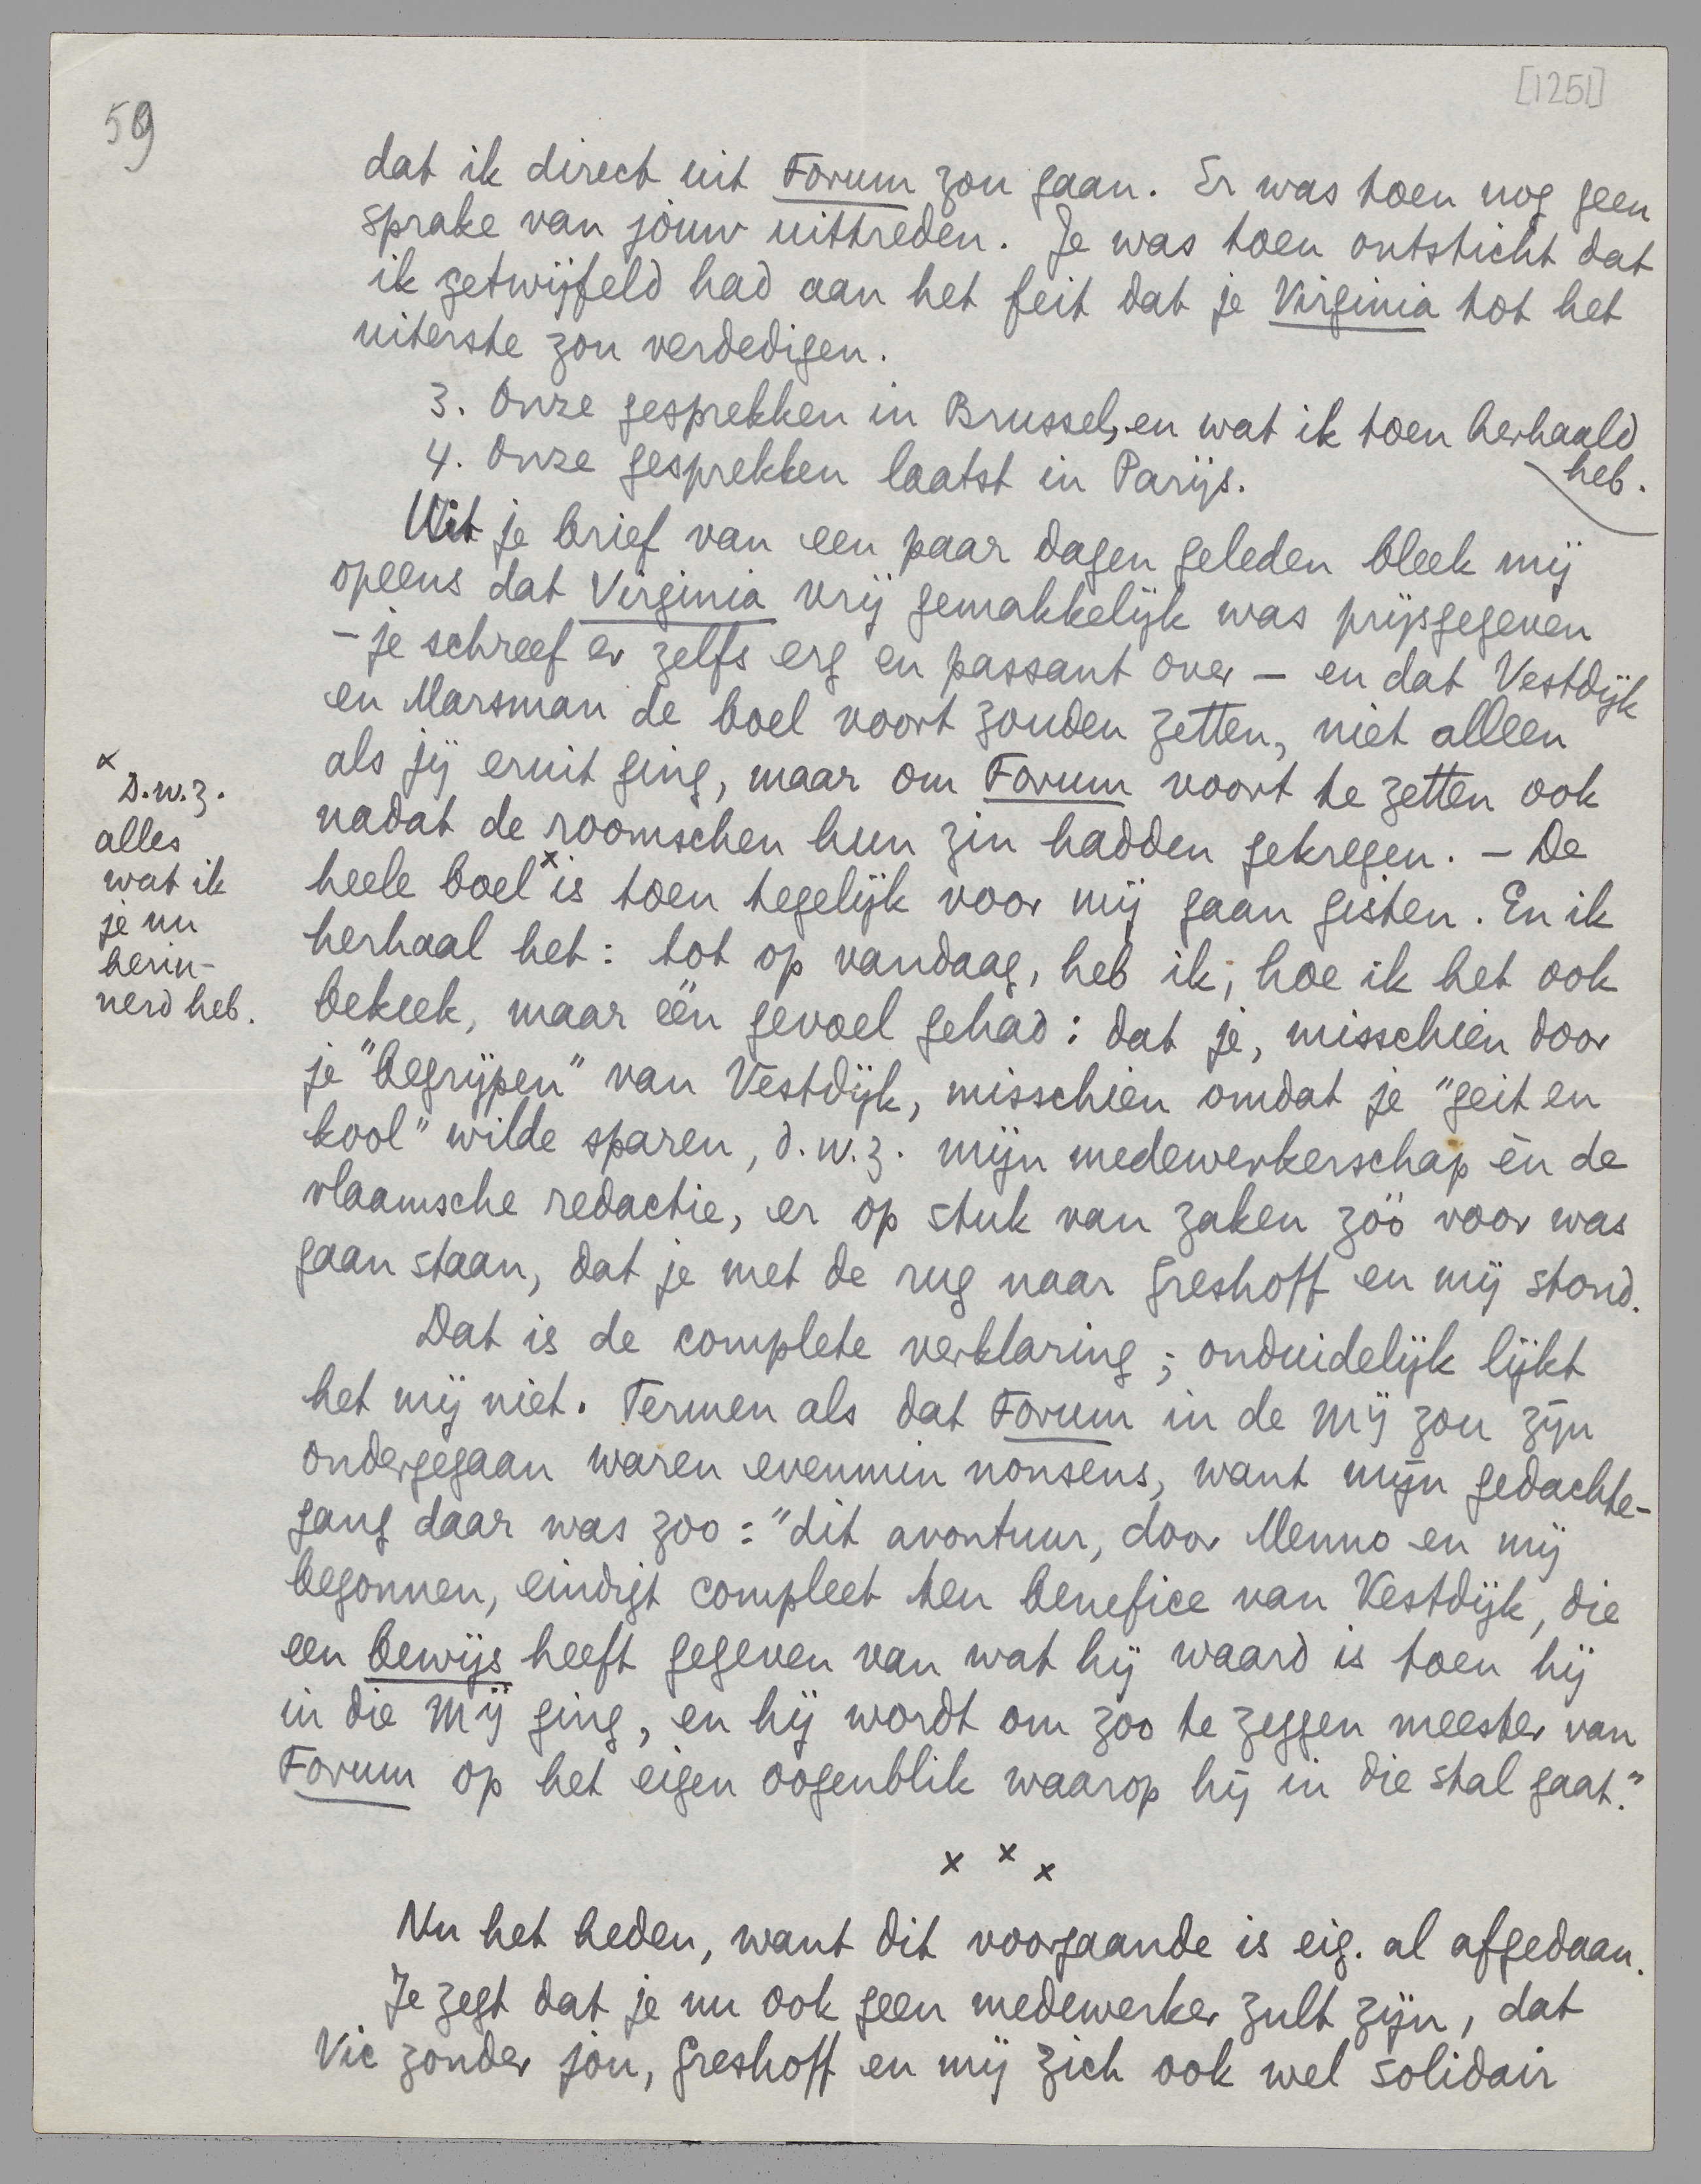 [1251]
59
dat ik direct uit Forum zou gaan. Er was toen nog geen
sprake van jòuw uittreden. Je was toen ontsticht dat
ik getwijfeld had aan het feit dat je Virginia tot het
uiterste zou verdedigen.
3. Onze gesprekken in Brussel, en wat ik toen herhaald
heb.
4. Onze gesprekken laatst in Parijs.
Uit je brief van een paar dagen geleden bleek mij
opeens dat Virginia vrij gemakkelijk was prijsgegeven
– je schreef er zelfs erg en passant over – en dat Vestdijk
en Marsman de boel voort zouden zetten, niet alleen
als jij eruit ging, maar om Forum voort te zetten ook
nadat de roomschen hun zin hadden gekregen. – De
heele boel x is toen tegelijk voor mij gaan gisten. En ik
herhaal het: tot op vandaag, heb ik, hoe ik het ook
bekeek, maar één gevoel gehad: dat je, misschien door
je "begrijpen" van Vestdijk, misschien omdat je "geit en
kool" wilde sparen, d.w.z. mijn medewerkerschap èn de
vlaamsche redactie, er op stuk van zaken zóó voor was
gaan staan, dat je met de rug naar Greshoff en mij stond.
x
D.w.z.
alles
wat ik
je nu
herin-
nerd heb.
Dat is de complete verklaring; onduidelijk lijkt
het mij niet. Termen als dat Forum in de Mij zou zijn
ondergegaan waren evenmin nonsens, want mijn gedachte-
gang daar was zoo: "dit avontuur, door Menno en mij
begonnen, eindigt compleet ten benefice van Vestdijk, die
een bewijs heeft gegeven van wat hij waard is toen hij
in die Mij ging, en hij wordt om zoo te zeggen meester van
Forum op het eigen oogenblik waarop hij in die stal gaat."
x x x
Nu het heden, want dit voorgaande is eig. al afgedaan.
Je zegt dat je nu ook geen medewerker zult zijn, dat
Vic zonder jou, Greshoff en mij zich ook wel solidair